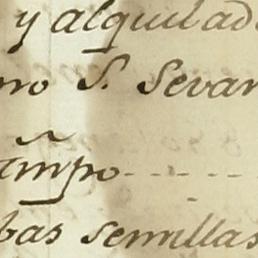 y alquilad
mo S. Sevan
tm̃po
bas semillas